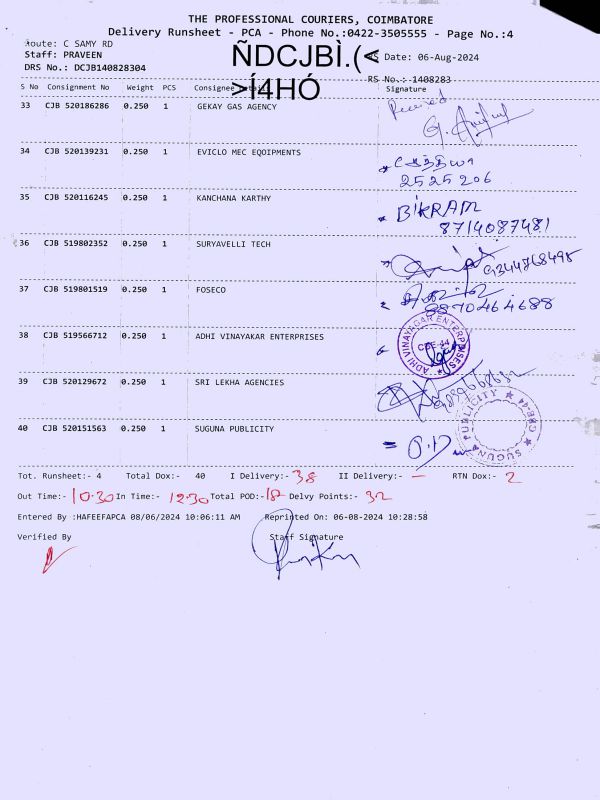 THE PROFESSIONAL COURIERS, COIMBATORE
Delivery Runsheet - PCA - Phone No.:0422-3505555 - Page No.:4
Route: C SAMY RD
Staff: PRAVEEN
DRS No.: DCJB140828304
ÑDCJBÌ.(<
>Í4HÓ
RS Date: 06-Aug-2024
RS No.: 1408283
S No Consignment No Weight PCS Consignee Details Signature
33 CJB 520186286 0.250 1 GEKAY GAS AGENCY Received
34 CJB 520139231 0.250 1 EVICLO MEC EQOIPMENTS
2525206
35 CJB 520116245 0.250 1 KANCHANA KARTHY BIKRAM
8714087481
36 CJB 519802352 0.250 1 SURYAVELLI TECH 9344768495
37 CJB 519801519 0.250 1 FOSECO
8870464688
38 CJB 519566712 0.250 1 ADHI VINAYAKAR ENTERPRISES
ADHI VINAYAGAR ENTERPRISES
CBE-44
39 CJB 520129672 0.250 1 SRI LEKHA AGENCIES
40 CJB 520151563 0.250 1 SUGUNA PUBLICITY
SUGUNA PUBLICITY CBE-44
Tot. Runsheet:- 4 Total Dox:- 40 I Delivery:- 38 II Delivery:- — RTN Dox:- 2
Out Time:- 10.30 In Time:- 12.30 Total POD:- 18 Delvy Points:- 32
Entered By :HAFEEFAPCA 08/06/2024 10:06:11 AM Reprinted On: 06-08-2024 10:28:58
Verified By Staff Signature